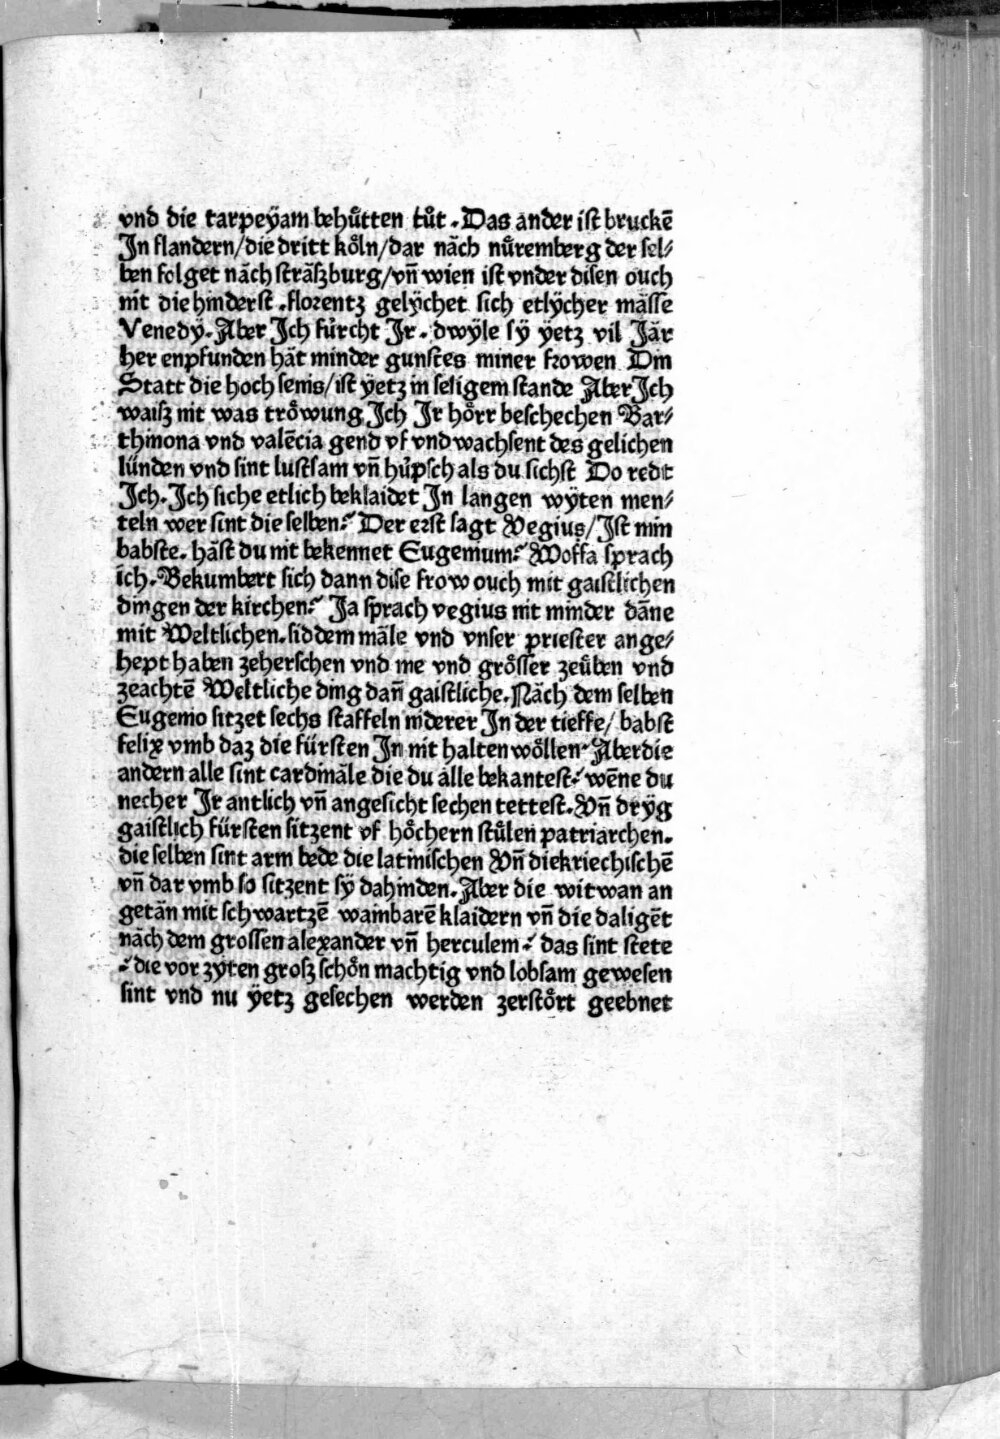 vnd die tarpeÿam behuͤtten tuͦt . Das ander ist bruckē
In flandern/die dritt koͤln/dar nǎch nuͤremberg der sel⸗
ben folget nǎch strǎszburg/vn̄ wien ist vnder disen ouch
nit die hinderst . florentz gelÿchet sich etlÿcher mǎsse
Venedÿ. Aber Jch fürcht Jr . dwÿle sÿ ÿetz vil Jǎr
her enpfunden hǎt minder gunstes miner frowen Din
Statt die hoch senis/ist ÿetz in seligem stande Aber Jch
waisz nit was troͤwung Jch Jr hoͤrr beschechen Bar⸗
thinona vnd valēcia gend vf vnd wachsent des gelichen
lünden vnd sint lustsam vn̄ hüpsch als du sichst Do redt
Jch. Jch siche etlich beklaidet Jn langen wÿten men⸗
teln wer sint die selben? Der erst sagt Vegius/Jst nin
babste. hǎst du nit bekennet Eugenium? Woffa sprach
ich. Bekumbert sich dann dise frow ouch mit gaistlichen
dingen der kirchen? Ja sprach vegius nit minder dāne
mit Weltlichen. sid dem mǎle vnd vnser priester ange⸗
hept haben zeherschen vnd me vnd groͤsser zeuͤben vnd
zeachtē Weltliche ding dan̄ gaistliche. Nǎch dem selben
Eugenio sitzet sechs staffeln niderer Jn der tieffe/ babst
felix vmb daz die fürsten Jn nit halten woͤllen. Aber die
andern alle sint cardinǎle die du alle bekantest? wēne du
necher Jr antlich vn̄ angesicht sechen tettest. Vn̄ drÿg
gaistlich fürsten sitzent vf hoͤchern stuͤlen patriarchen.
die selben sint arm bede die latinischen Vn̄ die kriechischē
vn̄ dar vmb so sitzent sÿ dahinden. Aber die witwan an
getǎn mit schwartzē wainbarē klaidern vn̄ die daligēt
nǎch dem grossen alexander vn̄ herculem? das sint stete
? die vor zyten grosz schoͤn machtig vnd lobsam gewesen
sint vnd nu ÿetz gesechen werden zerstoͤrt geebnet